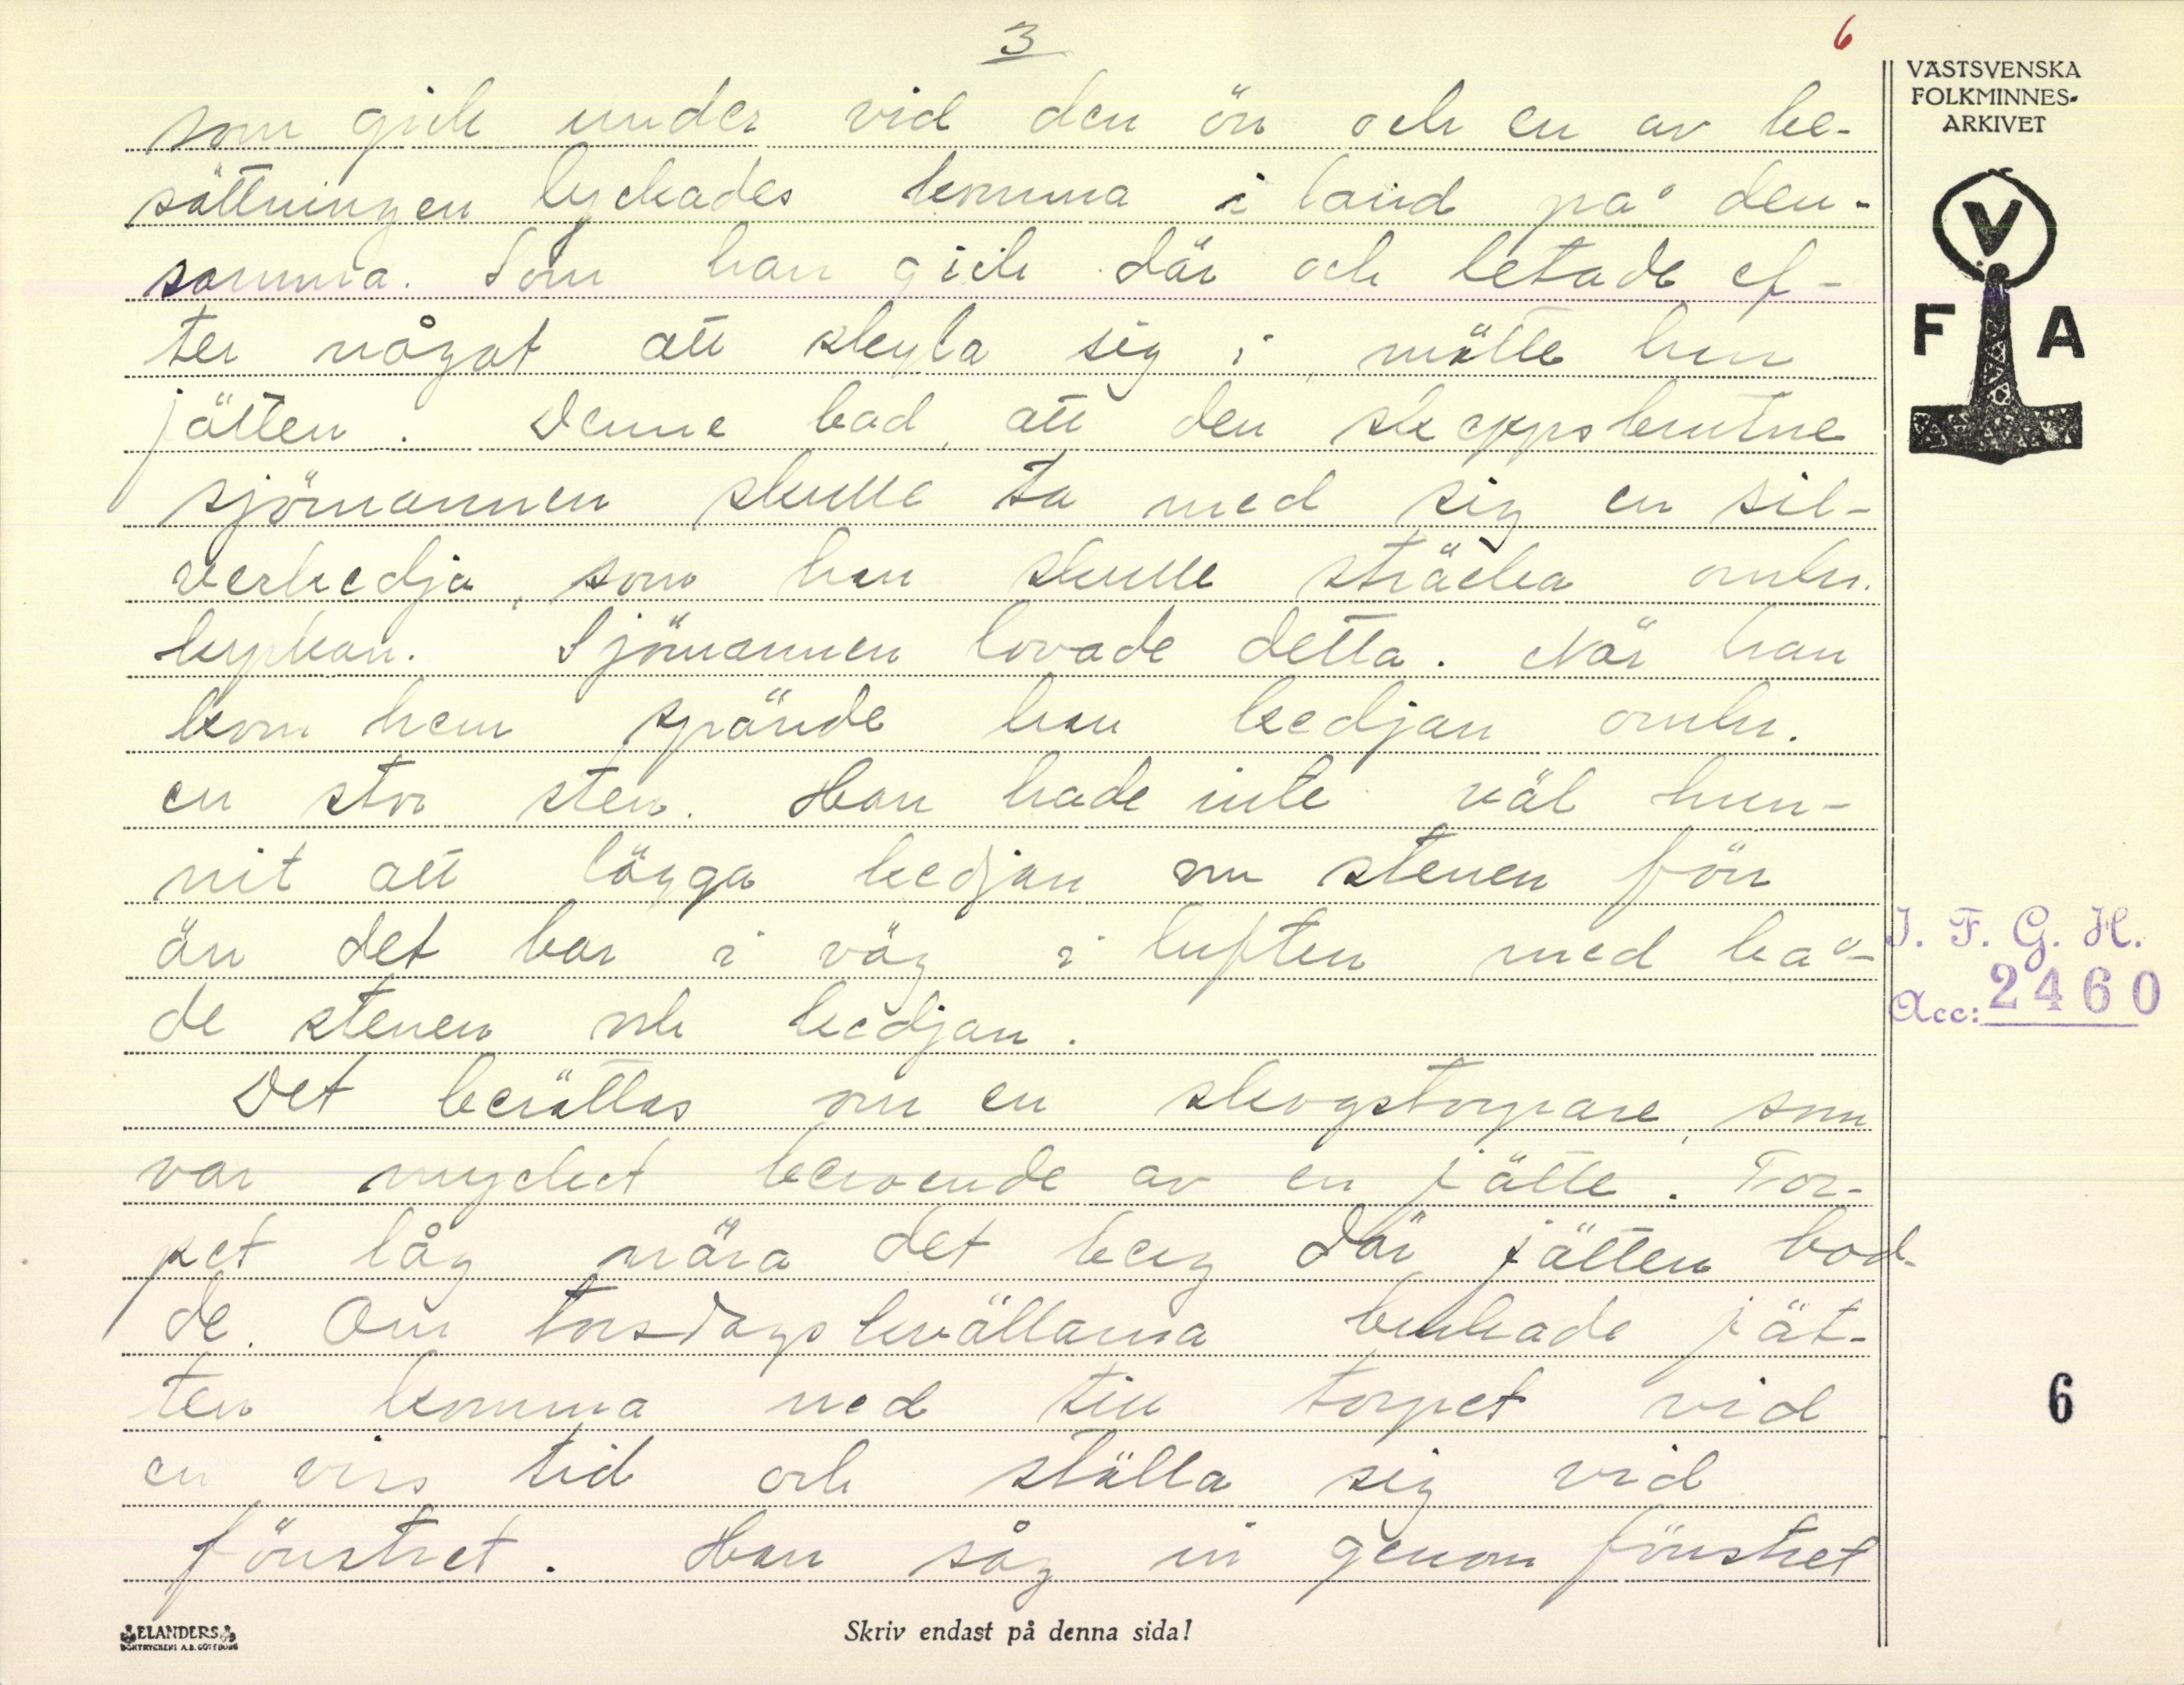 3
6
VÄSTSVENSKA
FOLKMINNES-
ARKIVET
V
F A
som gick under vid den ön och en av be-
sättningen lyckades komma i land på den-
samma. Som han gick där och letade ef-
ter något att skyla sig i, mötte han
jätten. Denne bad, att den skeppsbrutne
sjömannen skulle ta med sig en sil-
verkedja, som han skulle sträcka omkr.
kyrkan. Sjömannen lovade detta. När han
kom hem spände han kedjan omkr.
en stor sten. Han hade inte väl hun-
nit att lägga kedjan om stenen förr
än det bar i väg i luften med bå-
de stenen och kedjan.
Det berättas om en skogstorpare, som
var mycket beroende av en jätte. Tor-
pet låg nära det berg där jätten bod-
de. Om torsdagskvällarna brukade jät-
ten komma ned till torpet vid
en viss tid och ställa sig vid
fönstret. Han såg in genom fönstret
I. F. G. H.
Acc: 2460
6
ELANDERS
BOKTRYCKERI A.B. GÖTEBORG
Skriv endast på denna sida!